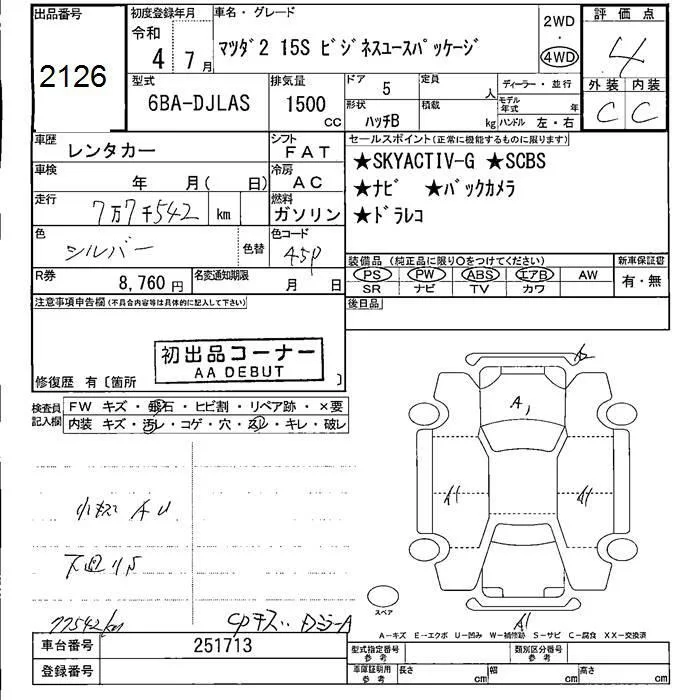 出品番号
2126
初度登録年月
令和
4年 7月
車名・グレード
マツダ2 15S ビジネスユースパッケージ
2WD
・
4WD
評価点
4
外装 内装
C C
型式
6BA-DJLAS
排気量
1500
cc
ドア
5
定員
人
形状
ハッチB
積載
kg
ディーラー・並行
モデル年式 年
ハンドル 左・右
車歴
レンタカー
シフト
FAT
車検
年 月( 日)
冷房
AC
走行
7万7千542 km
燃料
ガソリン
色
シルバー
色替
色コード
45P
R券
8,760円
名変通知期限
月 日
セールスポイント(正常に機能するものに限ります)
★SKYACTIV-G ★SCBS
★ナビ ★バックカメラ
★ドラレコ
装備品 (純正品に限り○をつけてください)
PS PW ABS エアB AW
SR ナビ TV カワ
新車保証書
有・無
後日品
注意事項申告欄(不具合内容等は具体的に記入して下さい)
初出品コーナー
AA DEBUT
修復歴 有〔箇所 〕
検査員
記入欄
FW キズ・飛石・ヒビ割・リペア跡・×要
内装 キズ・汚レ・コゲ・穴・スレ・キレ・破レ
小キズ A U
下廻りS
77542km
CPキズ.. DミラーA
A1
A1
A1
A1
スペア
A-キズ E-エクボ U-凹み W-補修跡 S-サビ C-腐食 XX-交換済
車台番号
251713
登録番号
型式指定番号
参考
類別区分番号
参考
車庫証明用
参考
長さ cm
幅 cm
高さ cm